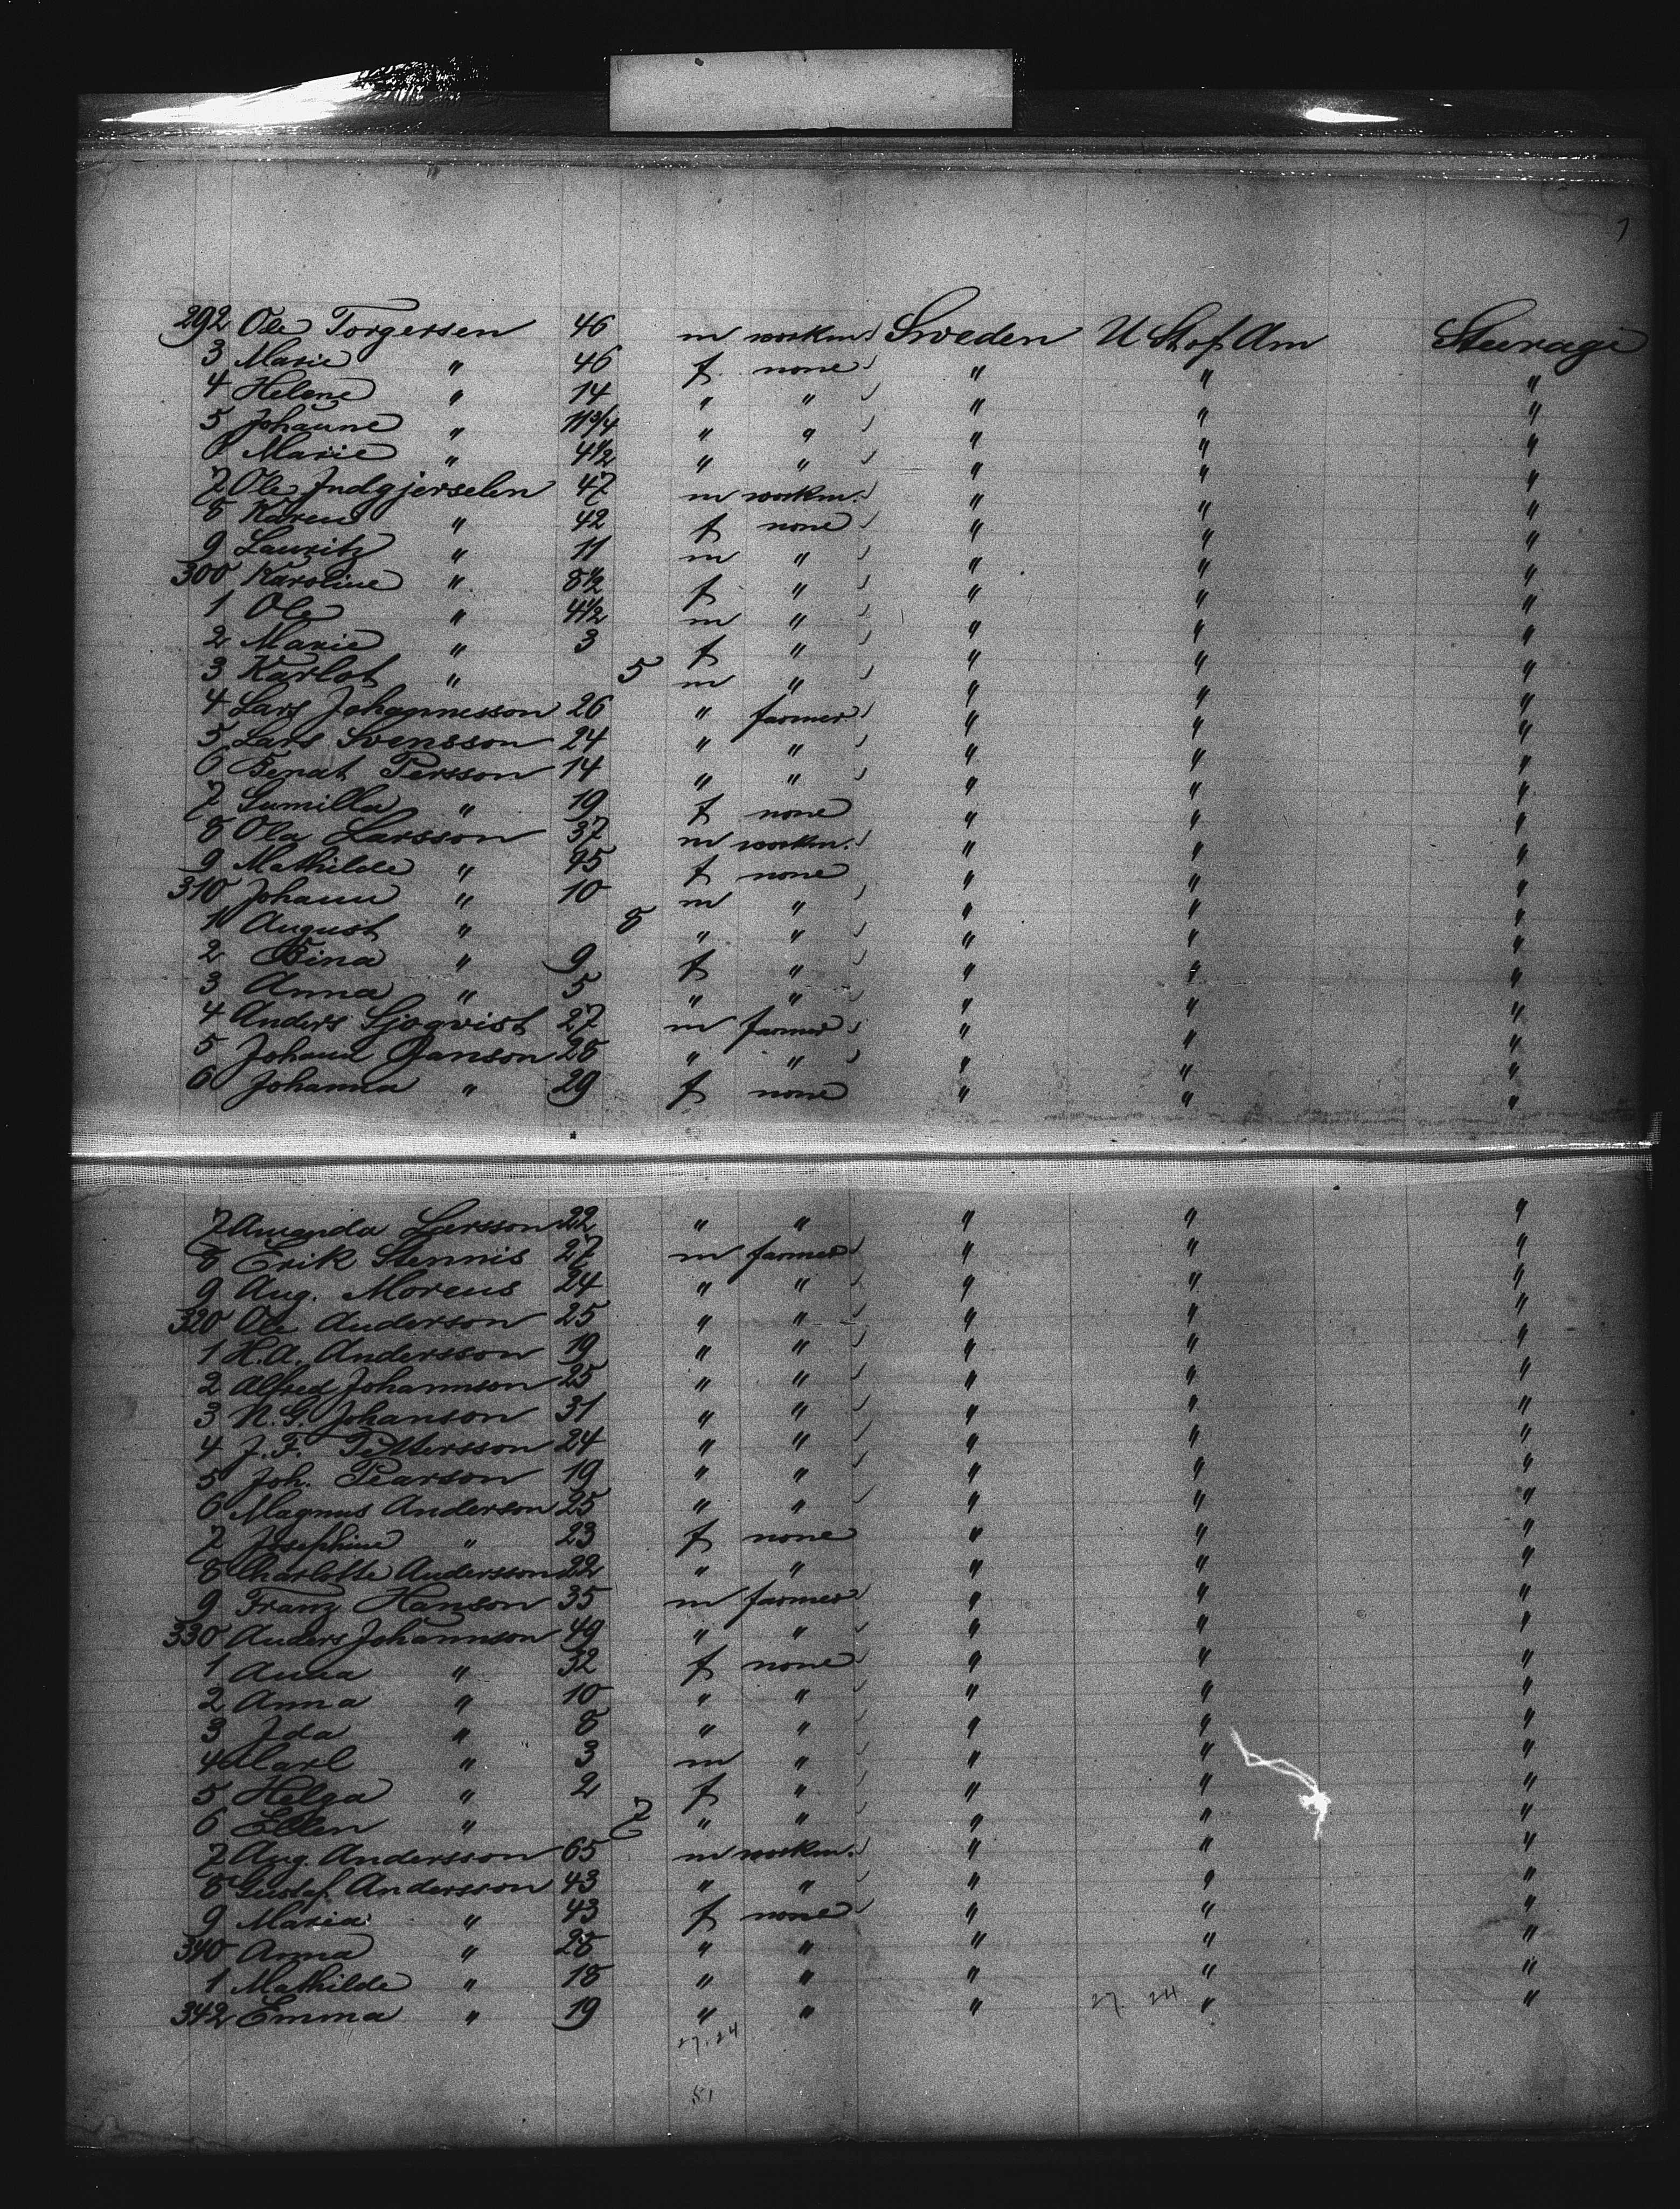 7
292 Ole Torgersen 46 m workm. Sweden U St of Am Steerage
3 Marie " 46 f none " " "
4 Helene " 14 " " " " "
5 Johanne " 11 3/4 " " " " "
6 Marie " 4 1/2 " " " " "
7 Ole Indgjerselen 47 m workm. " " "
8 Karen " 42 f none " " "
9 Lauritz " 11 m " " " "
300 Karoline " 8 1/2 f " " " "
1 Ole " 4 1/2 m " " " "
2 Marie " 3 f " " " "
3 Karlot " 5 m " " " "
4 Lars Johannesson 26 " farmer " " "
5 Lars Svensson 24 " " " " "
6 Benat Persson 14 " " " " "
7 Gumilla " 19 f none " " "
8 Ola Larsson 37 m workm. " " "
9 Mathilde " 45 f none " " "
310 Johann " 10 m " " " "
11 August " 8 " " " " "
2 Bina " 9 f " " " "
3 Anna " 5 " " " " "
4 Anders Sjoqvist 27 m farmer " " "
5 Johann Janson 28 " " " " "
6 Johanna " 29 f none " " "
7 Amanda Larsson 22 " " " " "
8 Erik Stennis 27 m farmer " " "
9 Aug. Moreus 24 " " " " "
320 Ole Anderson 25 " " " " "
1 H.A. Andersson 19 " " " " "
2 Alfred Johannson 25 " " " " "
3 N.G. Johanson 31 " " " " "
4 J.F. Pettersson 24 " " " " "
5 Joh. Pearson 19 " " " " "
6 Magnus Anderson 25 " " " " "
7 Josephine " 23 f none " " "
8 Charlotte Andersson 22 " " " " "
9 Franz Hanson 35 m farmer " " "
330 Anders Johannson 49 " " " " "
1 Anna " 32 f none " " "
2 Anna " 10 " " " " "
3 Ida " 8 " " " " "
4 Carl " 3 m " " " "
5 Helga " 2 f " " " "
6 Ellen " 7 " " " " "
7 Aug. Andersson 65 m workm. " " "
8 Gustaf Andersson 43 " " " " "
9 Maria " 43 f none " " "
340 Anna " 28 " " " " "
1 Mathilde " 18 " " " " "
342 Emma " 19 " " " 27. 24 " "
27.24
51